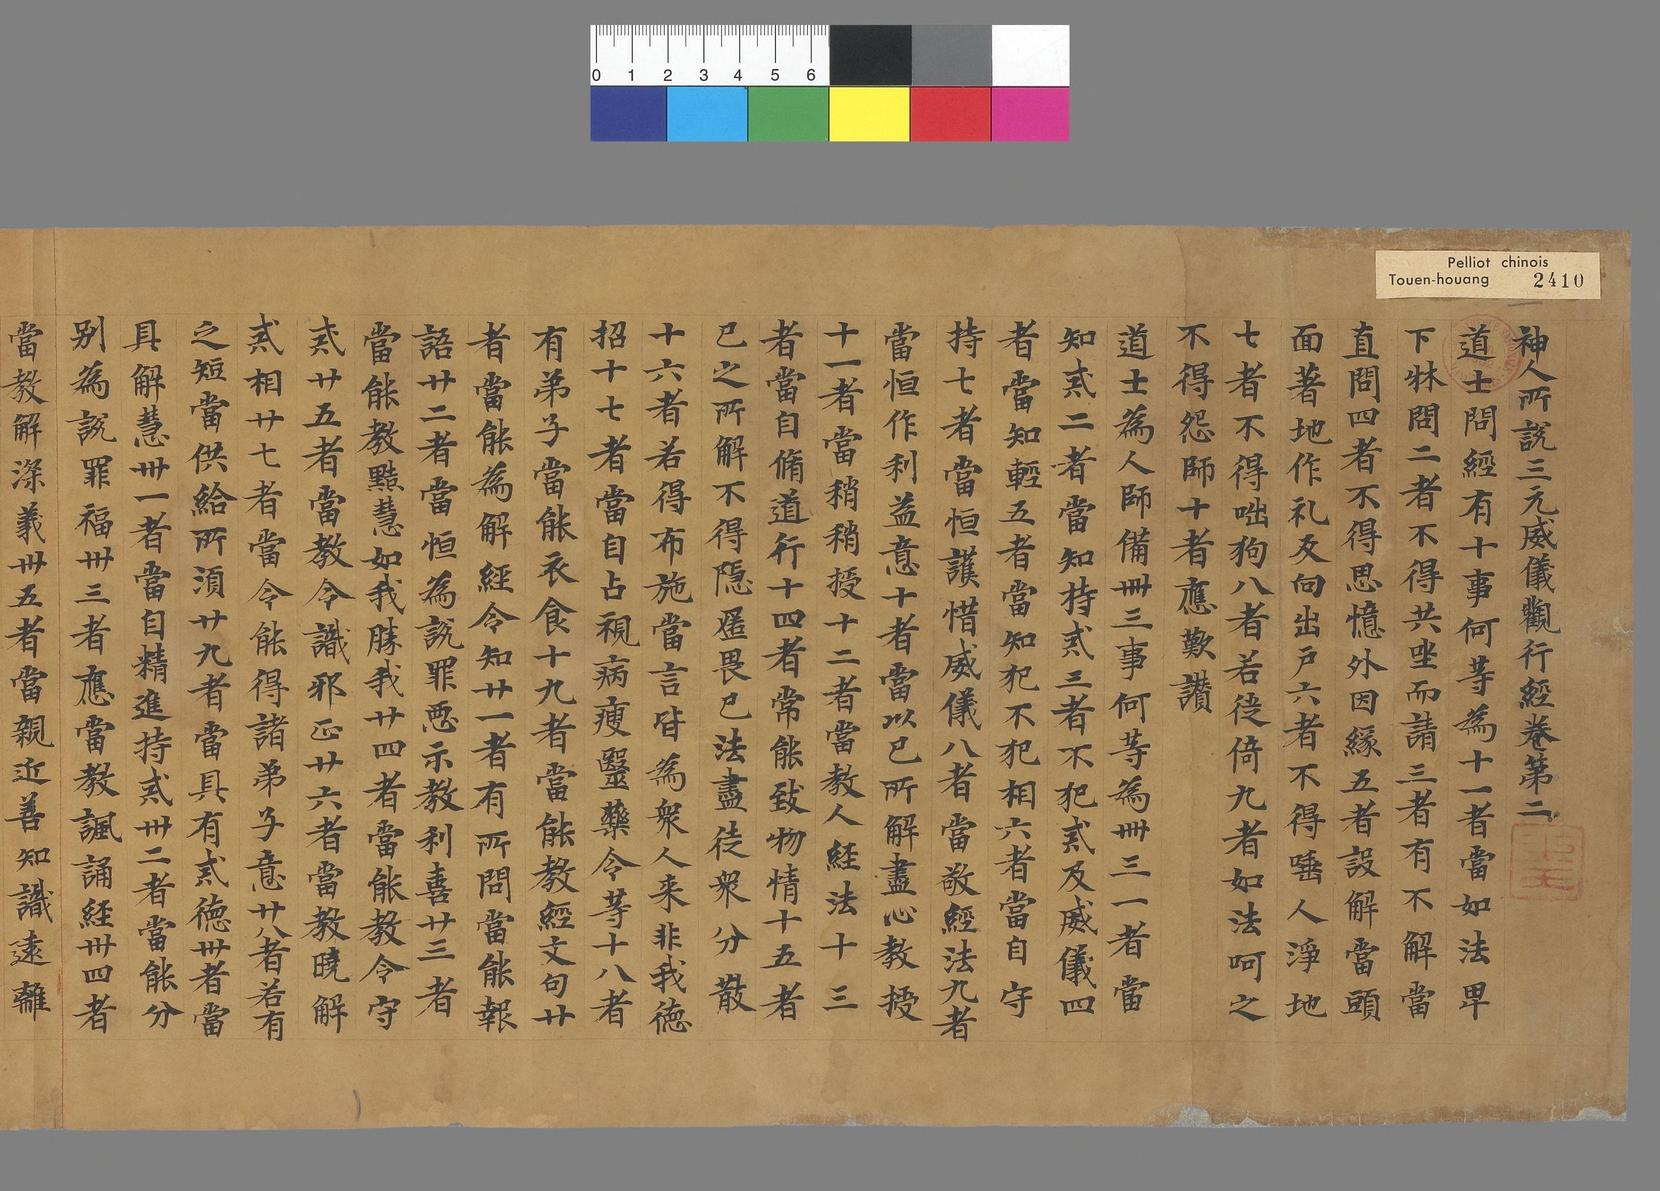 0 1 2 3 4 5 6
Pelliot chinois
Touen-houang 2410
神人所說三元威儀觀行經卷第二
道士問經有十事何等為十一者當如法卑
下牀問二者不得共坐而請三者有不解當
直問四者不得思憶外因緣五者設解當頭
面著地作礼及向出戶六者不得唾人淨地
七者不得咄狗八者若徒倚九者如法呵之
不得怨師十者應歎讚
道士為人師備卌三事何等為卌三一者當
知貳二者當知持貳三者不犯貳及威儀四
者當知輕五者當知犯不犯相六者當自守
持七者當恒護惜威儀八者當敬經法九者
當恒作利益意十者當以已所解盡心教授
十一者當稍稍授十二者當教人經法十三
者當自脩道行十四者常能致物情十五者
已之所解不得隱遲畏已法盡徒衆分散
十六者若得布施當言皆為衆人来非我德
招十七者當自占視病瘦醫藥令等十八者
有弟子當能衣食十九者當能教經文句廿
者當能為解經令知廿一者有所問當能報
語廿二者當恒為說罪惡示教利喜廿三者
當能教黠慧如我勝我廿四者當能教令守
貳廿五者當教令識邪正廿六者當教曉解
貳相廿七者當令能得諸弟子意廿八者若有
之短當供給所須廿九者當具有貳德卅者當
具解慧卅一者當自精進持貳卅二者當能分
別為說罪福卅三者應當教諷誦経卅四者
當教解深義卅五者當親近善知識遠離